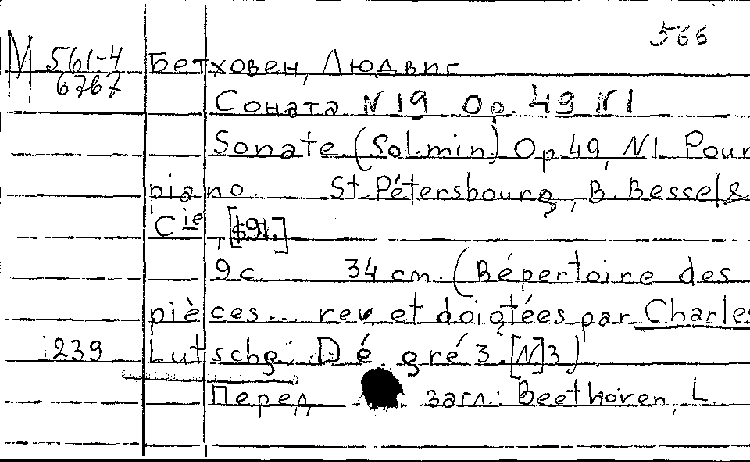 566
М 561-4 Бетховен, Людвиг
6767
Соната N 19 Op. 49 N1
Sonate (Sol-min) Op 49, N1 Pour
piano. St Pétersbourg, B. Bessel &
Cie,
9 с. 34 cm. (Répertoire des
pièces... rev et doigtées par Charles
239 Lutschg: Dé gré 3. [N]3)
Перед загл: Beethoven, L.